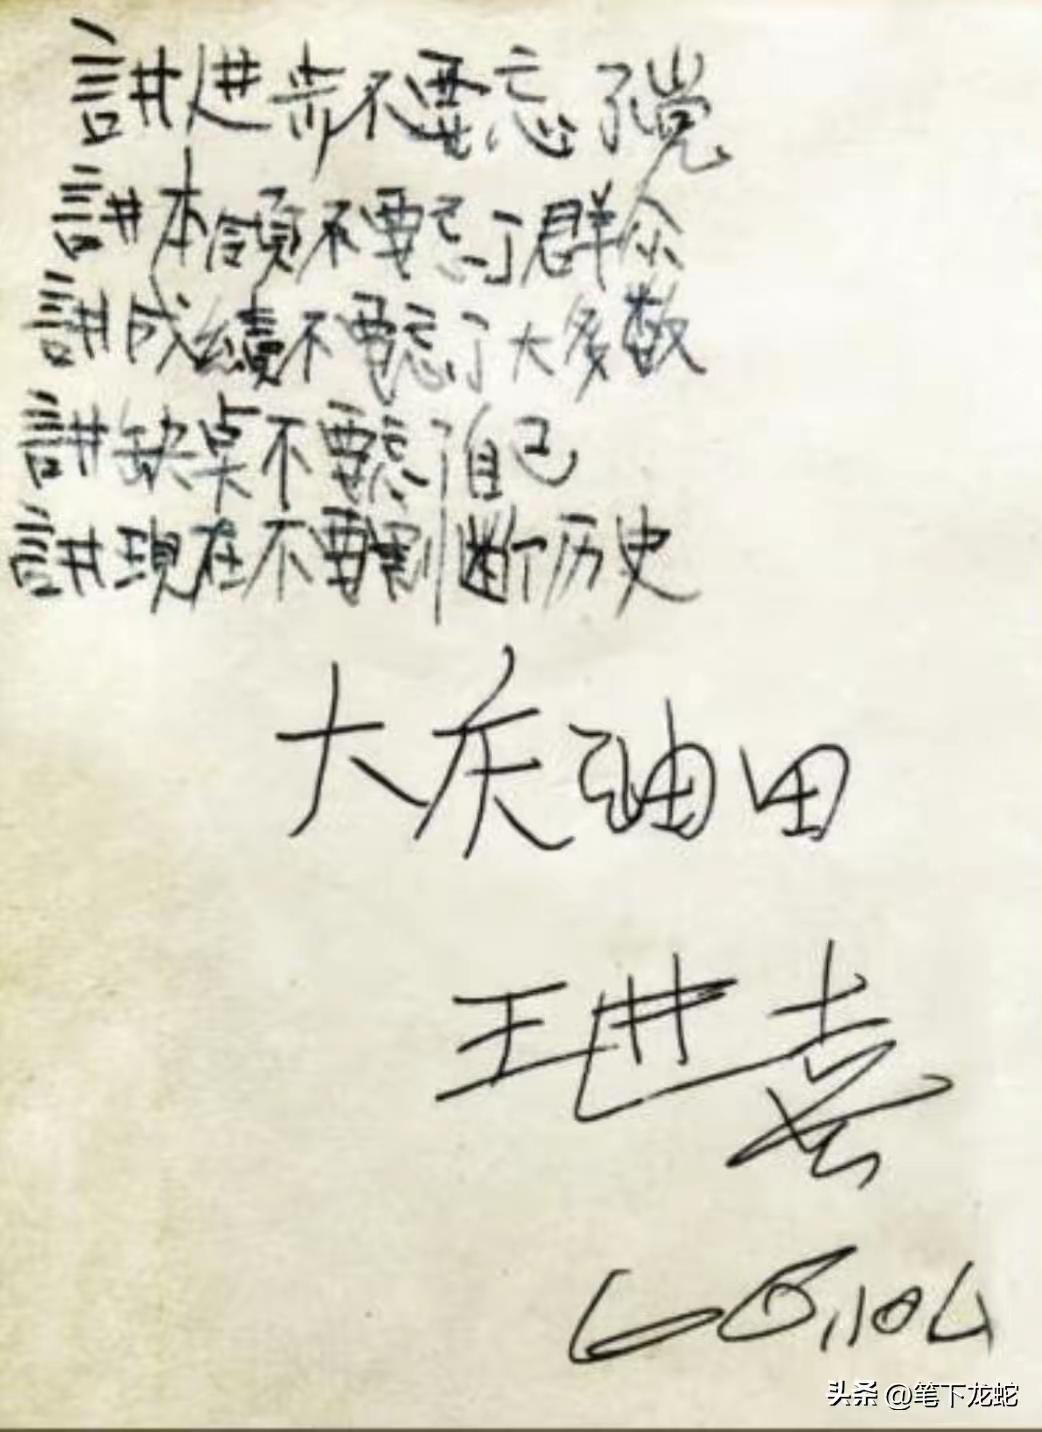 讲进步不要忘了党
讲本領不要忘了群众
讲成績不要忘了大多数
讲缺点不要忘了自己
讲現在不要割断历史
大庆油田
王进喜
头条 @笔下龙蛇